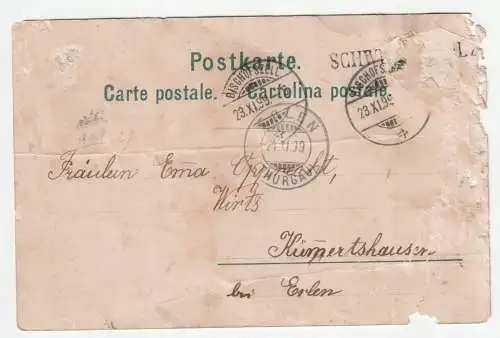 Postkarte.
Carte postale. Cartolina postale.
BISCHOFSZELL
23.XI.99.
BISCHOFSZ
23.XI.99
THURGAU
Fräulein Ema
Wirts
Kümmertshausen
bei Erlen